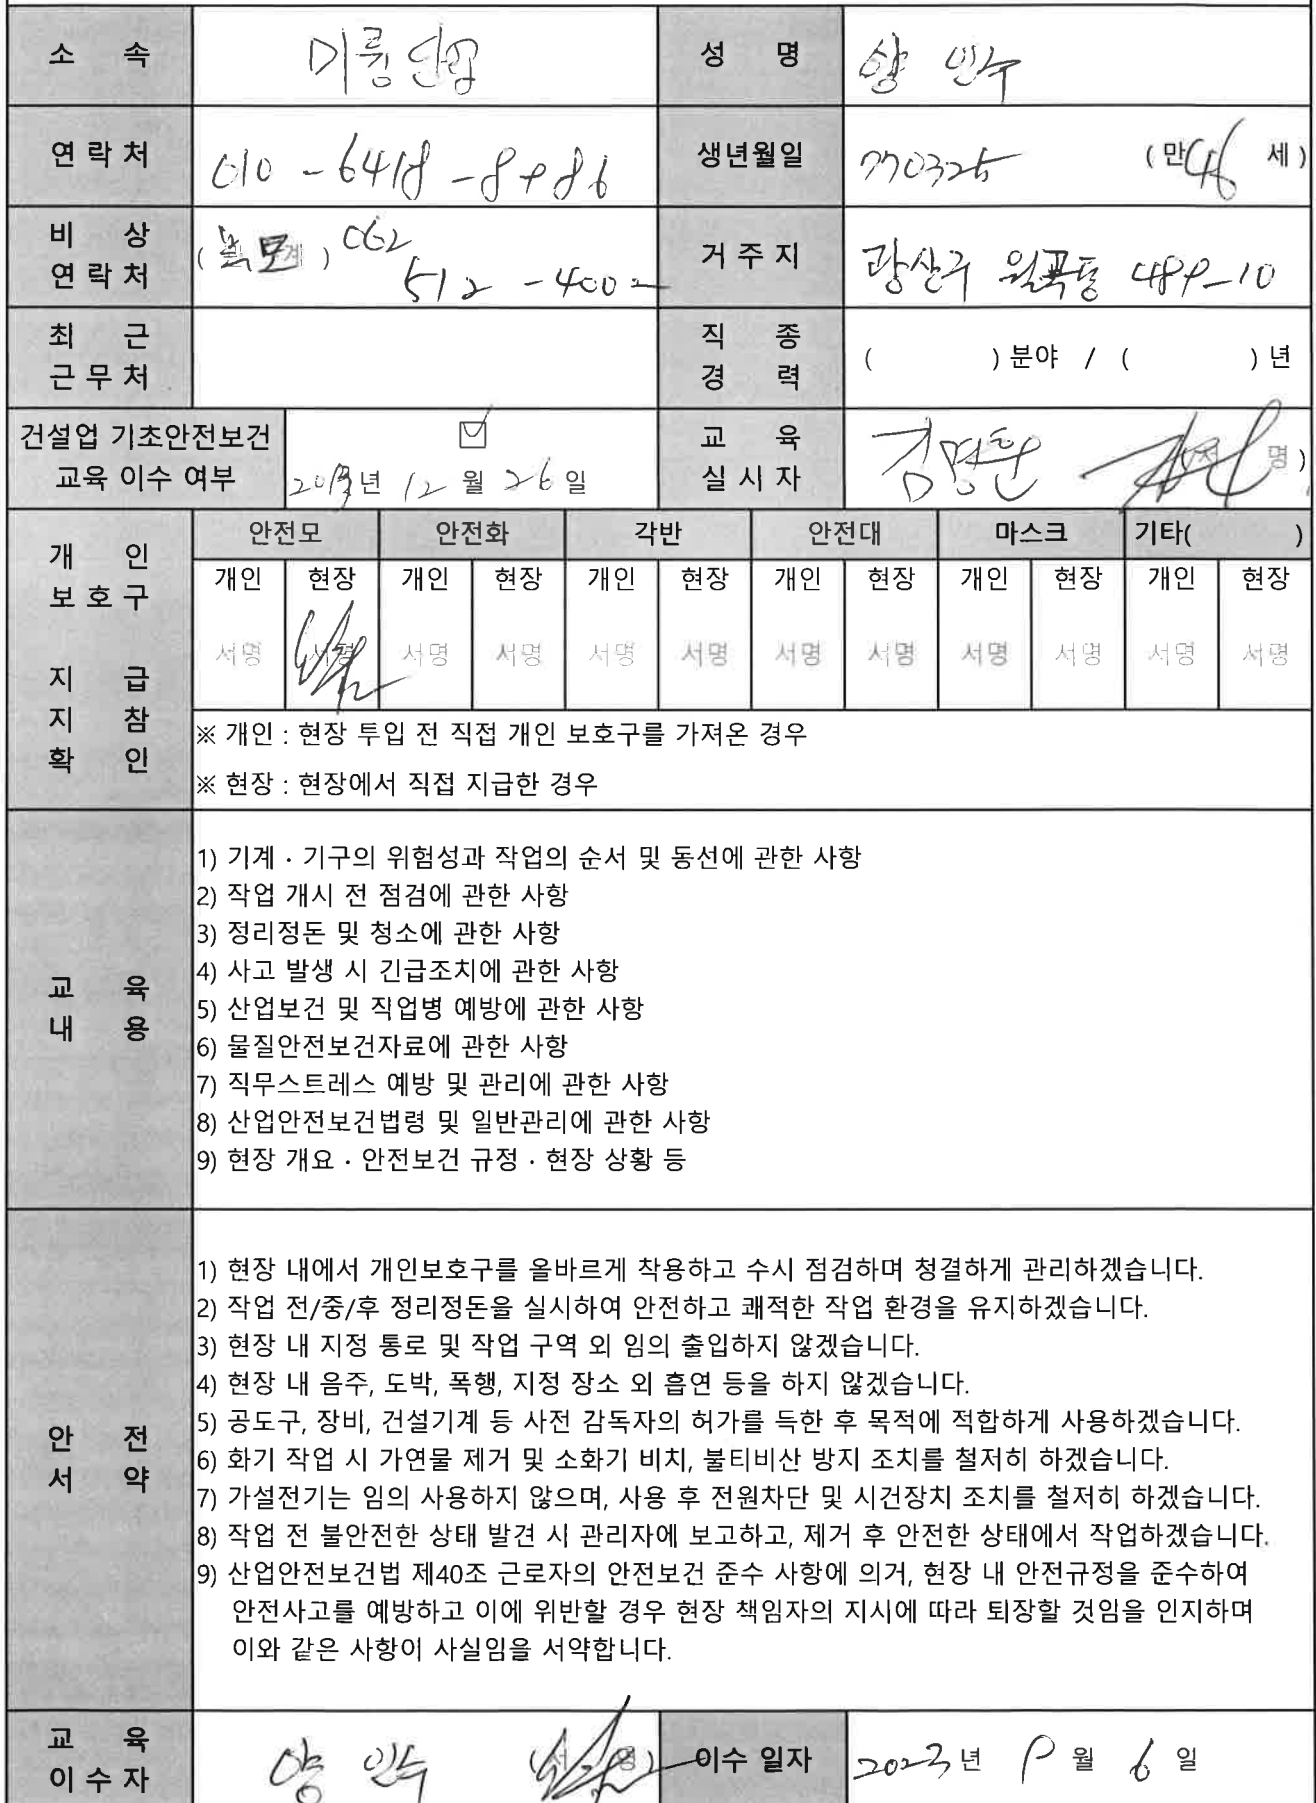 소 속
성 명
연 락 처
010-6418-8986
생년월일
770325
( 만 46 세 )
비 상
연 락 처
( 부모 ) 062
512-4002
거 주 지
광산구 월곡동 489-10
최 근
근 무 처
직 종
경 력
( ) 분야 / ( ) 년
건설업 기초안전보건
교육 이수 여부
년 12 월 26 일
교 육
실 시 자
김명훈
명 )
개 인
보 호 구
지 급
지 참
확 인
안전모 안전화 각반 안전대 마스크 기타( )
개인 현장 개인 현장 개인 현장 개인 현장 개인 현장 개인 현장
서명 서명 서명 서명 서명 서명 서명 서명 서명 서명 서명 서명
※ 개인 : 현장 투입 전 직접 개인 보호구를 가져온 경우
※ 현장 : 현장에서 직접 지급한 경우
교 육
내 용
1) 기계 · 기구의 위험성과 작업의 순서 및 동선에 관한 사항
2) 작업 개시 전 점검에 관한 사항
3) 정리정돈 및 청소에 관한 사항
4) 사고 발생 시 긴급조치에 관한 사항
5) 산업보건 및 직업병 예방에 관한 사항
6) 물질안전보건자료에 관한 사항
7) 직무스트레스 예방 및 관리에 관한 사항
8) 산업안전보건법령 및 일반관리에 관한 사항
9) 현장 개요 · 안전보건 규정 · 현장 상황 등
안 전
서 약
1) 현장 내에서 개인보호구를 올바르게 착용하고 수시 점검하며 청결하게 관리하겠습니다.
2) 작업 전/중/후 정리정돈을 실시하여 안전하고 쾌적한 작업 환경을 유지하겠습니다.
3) 현장 내 지정 통로 및 작업 구역 외 임의 출입하지 않겠습니다.
4) 현장 내 음주, 도박, 폭행, 지정 장소 외 흡연 등을 하지 않겠습니다.
5) 공도구, 장비, 건설기계 등 사전 감독자의 허가를 득한 후 목적에 적합하게 사용하겠습니다.
6) 화기 작업 시 가연물 제거 및 소화기 비치, 불티비산 방지 조치를 철저히 하겠습니다.
7) 가설전기는 임의 사용하지 않으며, 사용 후 전원차단 및 시건장치 조치를 철저히 하겠습니다.
8) 작업 전 불안전한 상태 발견 시 관리자에 보고하고, 제거 후 안전한 상태에서 작업하겠습니다.
9) 산업안전보건법 제40조 근로자의 안전보건 준수 사항에 의거, 현장 내 안전규정을 준수하여
안전사고를 예방하고 이에 위반할 경우 현장 책임자의 지시에 따라 퇴장할 것임을 인지하며
이와 같은 사항이 사실임을 서약합니다.
교 육
이 수 자
이수 일자
2023 년 9 월 6 일